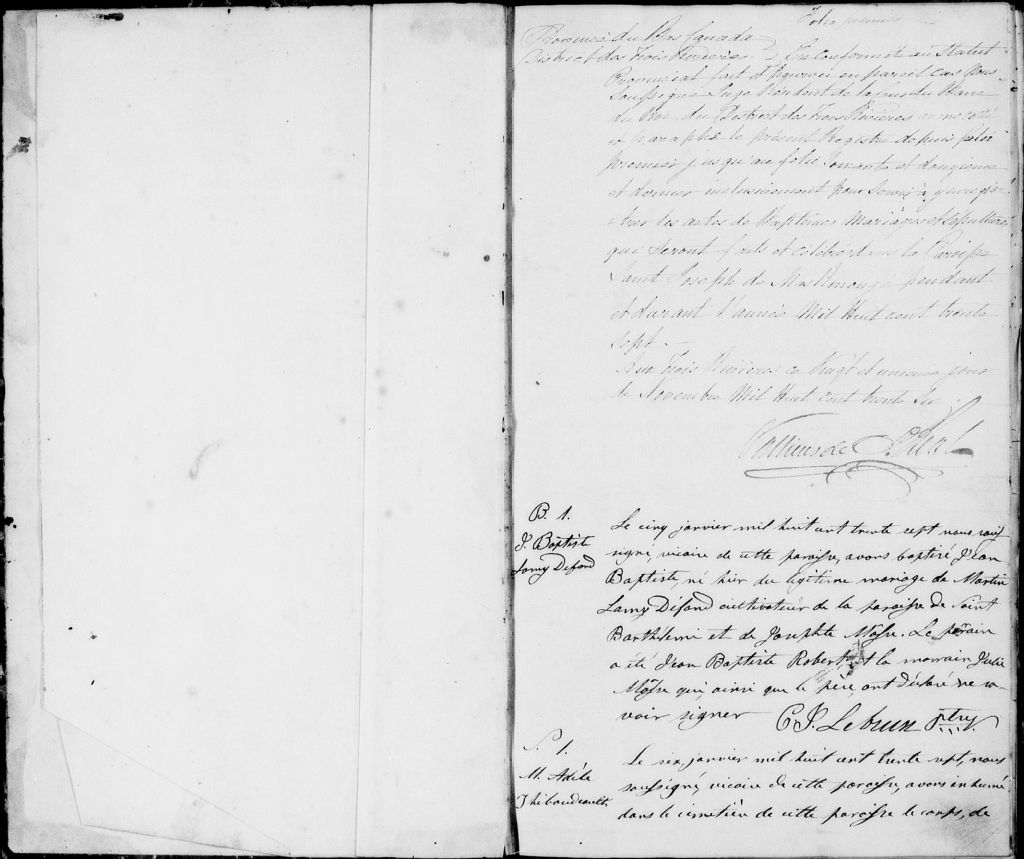 Folio premier
Province du Bas Canada
District des Trois Rivieres. } En conformité au Statut
Provincial fait et pourvu en pareil cas Nous
Soussigné Juge Résident de la cour du Banc
du Roi du District des Trois Rivières avons coté
et paraphé le présent Registre depuis folio
premier jusqu'au folio et douzieme
et dernier inclusivement pour servir à y enregis-
=trer les actes de Baptêmes Mariages et Sépultures
qui seront faits et célébrés dans la Paroisse
Saint Joseph de Maskinongé pendant
et durant l'année Mil Huit cent trente
sept.
Aux Trois Rivières ce Vingt et unieme jour
de Novembre Mil Huit cent trente Six.
Vallieres de St Réal
B. 1.
J. Baptiste
Lamy Défond
Le cinq janvier mil huit cent trente sept nous sous-
signé, vicaire de cette paroisse, avons baptisé Jean
Baptiste, né hier du légitime mariage de Martin
Lamy Défond cultivateur de la paroisse de Saint
Barthélemi et de Josephte Mâsse. Le parain
a été Jean Baptiste Robert et la marrain Julie
Mâsse qui, ainsi que le père, ont déclaré ne sa-
voir signer C. J. Lebrun ptre.
S. 1.
M. Adèle
Thibaudeault
Le six janvier mil huit cent trente sept, nous
soussigné, vicaire de cette paroisse, avons inhumé
dans le cimetière de cette paroisse le corps, de